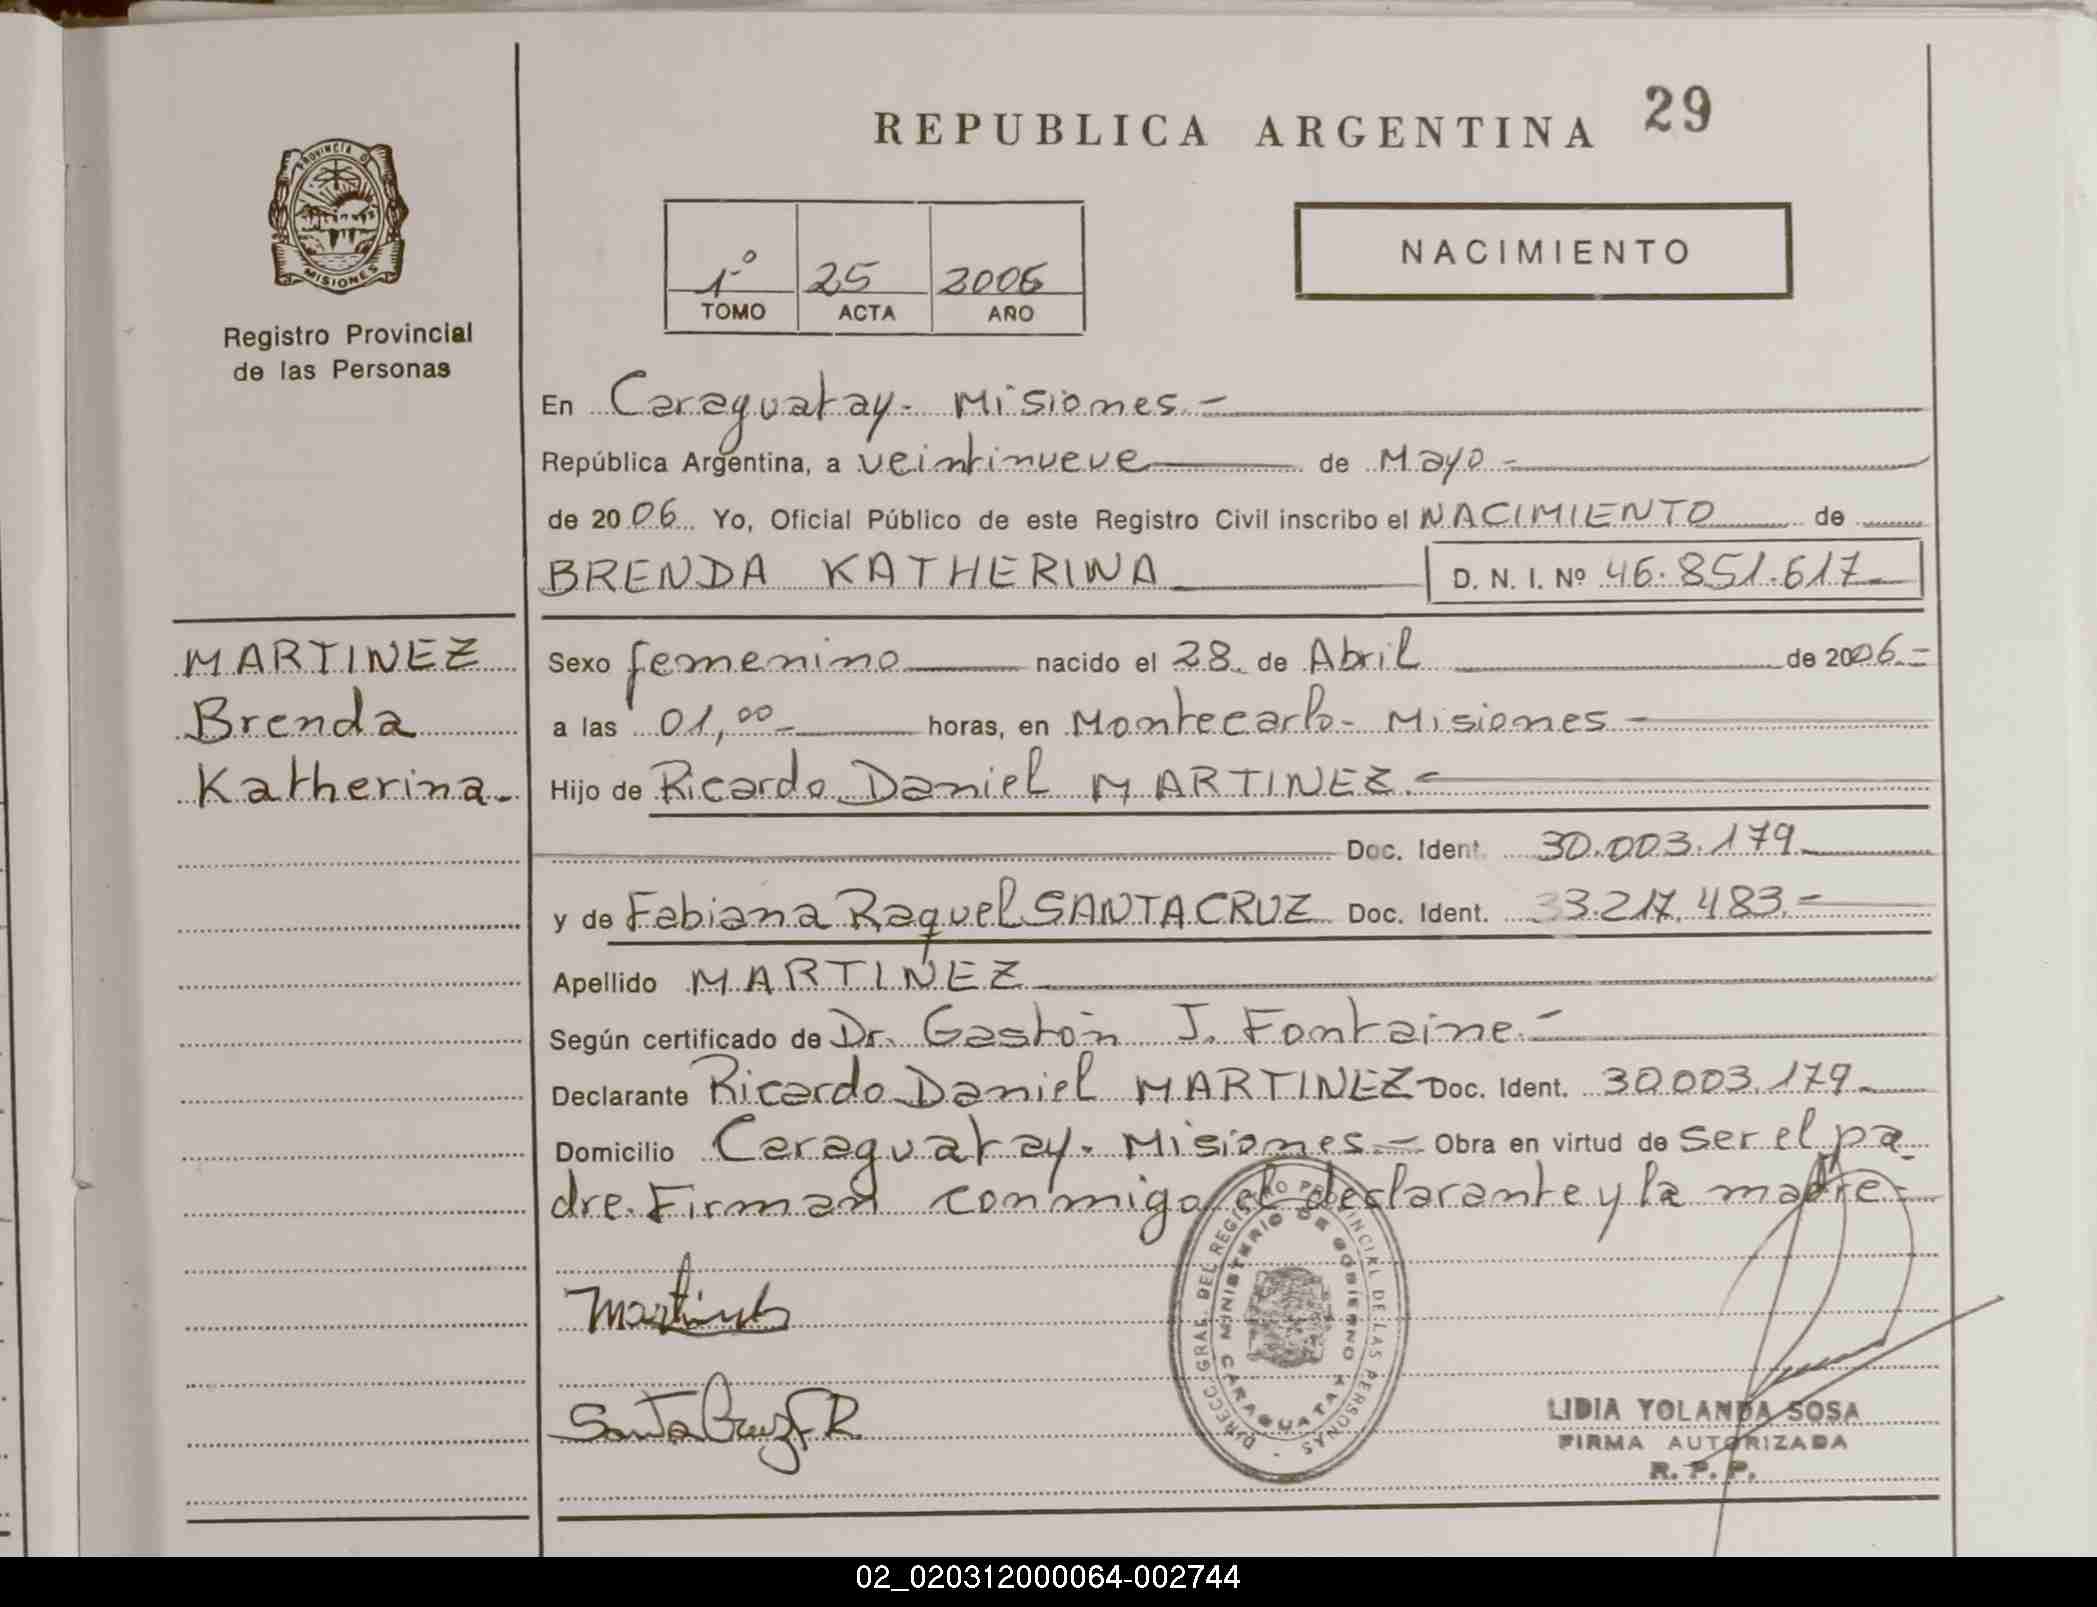 REPUBLICA ARGENTINA 29
PROVINCIA DE
MISIONES
Registro Provincial
de las Personas
1º 25 2006
TOMO ACTA AÑO
NACIMIENTO
En Caraguatay - Misiones.-
República Argentina, a veintinueve de Mayo -
de 2006 Yo, Oficial Público de este Registro Civil inscribo el NACIMIENTO de
BRENDA KATHERINA D. N. I. Nº 46.851.617-
MARTINEZ
Brenda
Katherina.-
Sexo femenino nacido el 28 de Abril de 2006.-
a las 01,00- horas, en Montecarlo - Misiones -
Hijo de Ricardo Daniel MARTINEZ.-
Doc. Ident. 30.003.179-
y de Fabiana Raquel SANTACRUZ Doc. Ident. 33.217.483.-
Apellido MARTINEZ
Según certificado de Dr. Gastón J. Fontaine.-
Declarante Ricardo Daniel MARTINEZ Doc. Ident. 30.003.179-
Domicilio Caraguatay - Misiones - Obra en virtud de ser el pa-
dre. Firman conmigo el declarante y la madre-
Martinez
SantaCruz F R
DIRECC. GRAL. DEL REGISTRO PROVINCIAL DE LAS PERSONAS -
MINISTERIO DE GOBIERNO
CARAGUATAY
LIDIA YOLANDA SOSA
FIRMA AUTORIZADA
R. P. P.
02_020312000064-002744